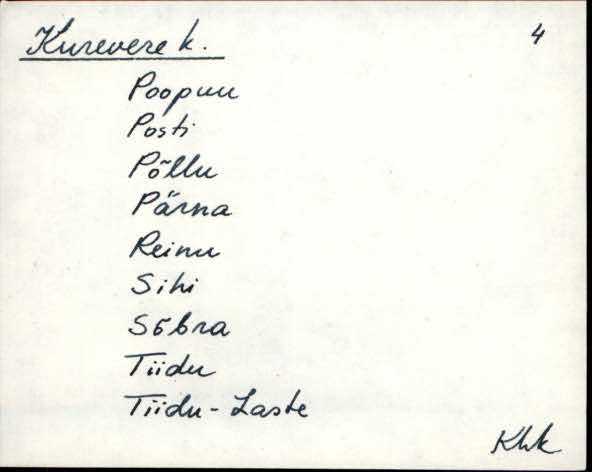 Kurevere k. 4
Poopuu
Posti
Põllu
Pärna
Reinu
Sihi
Sõbra
Tiidu
Tiidu-Laste
Khk